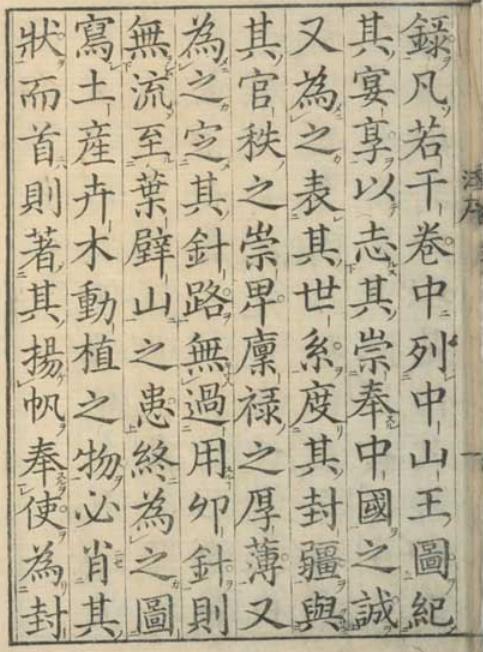 錄凡若干卷中列中山王圖紀
其宴享以志其崇奉中國之誠
又為之表其世系度其封疆與
其官秩之崇卑廩禄之厚薄又
為之㝎其針路無過用卯針則
無流至葉壁山之患終為之圖
寫土産卉木動植之物必肖其
狀而首則著其揚帆奉使為封